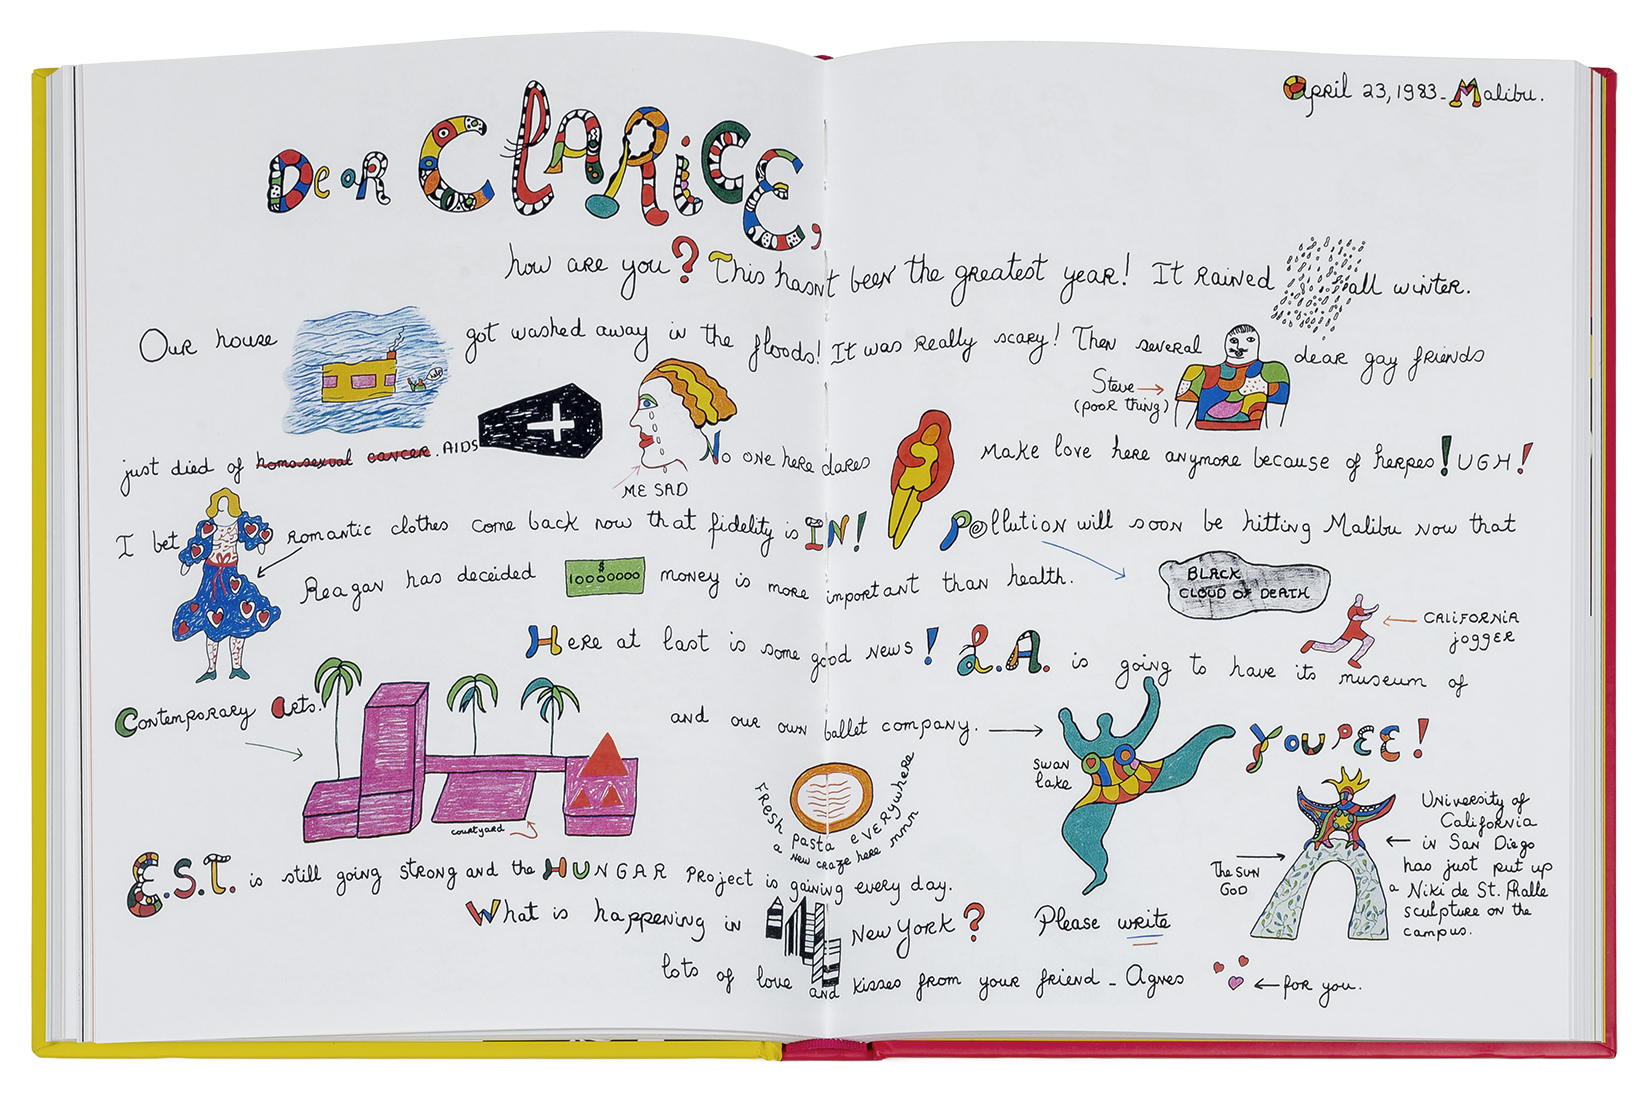 April 23, 1983_ Malibu.
Dear CLARICE,
how are you? This hasn't been the greatest year! It rained all winter.
Our house got washed away in the floods! It was really scary! Then several dear gay friends
help
Steve
(poor thing)
just died of homosexual cancer. AIDS No one here dares make love here anymore because of herpes! UGH!
ME SAD
I bet romantic clothes come back now that fidelity is IN! Pollution will soon be hitting Malibu now that
Reagan has deceided $ 10000000 money is more important than health.
BLACK
CLOUD OF DEATH
CALIFORNIA
jogger
Here at last is some good news! L.A. is going to have its museum of
Contemporary Arts. and our own ballet company. YOUPEE!
swan
lake
courtyard
FRESH pasta EVERYwhere
a new craze here mnnn
University of
California
in San Diego
has just put up
a Niki de St. Phalle
sculpture on the
campus.
The SUN
GOD
E.S.T. is still going strong and the HUNGAR Project is gaining every day.
What is happening in New York? Please write
lots of love and kisses from your friend _ Agnes ← for you.